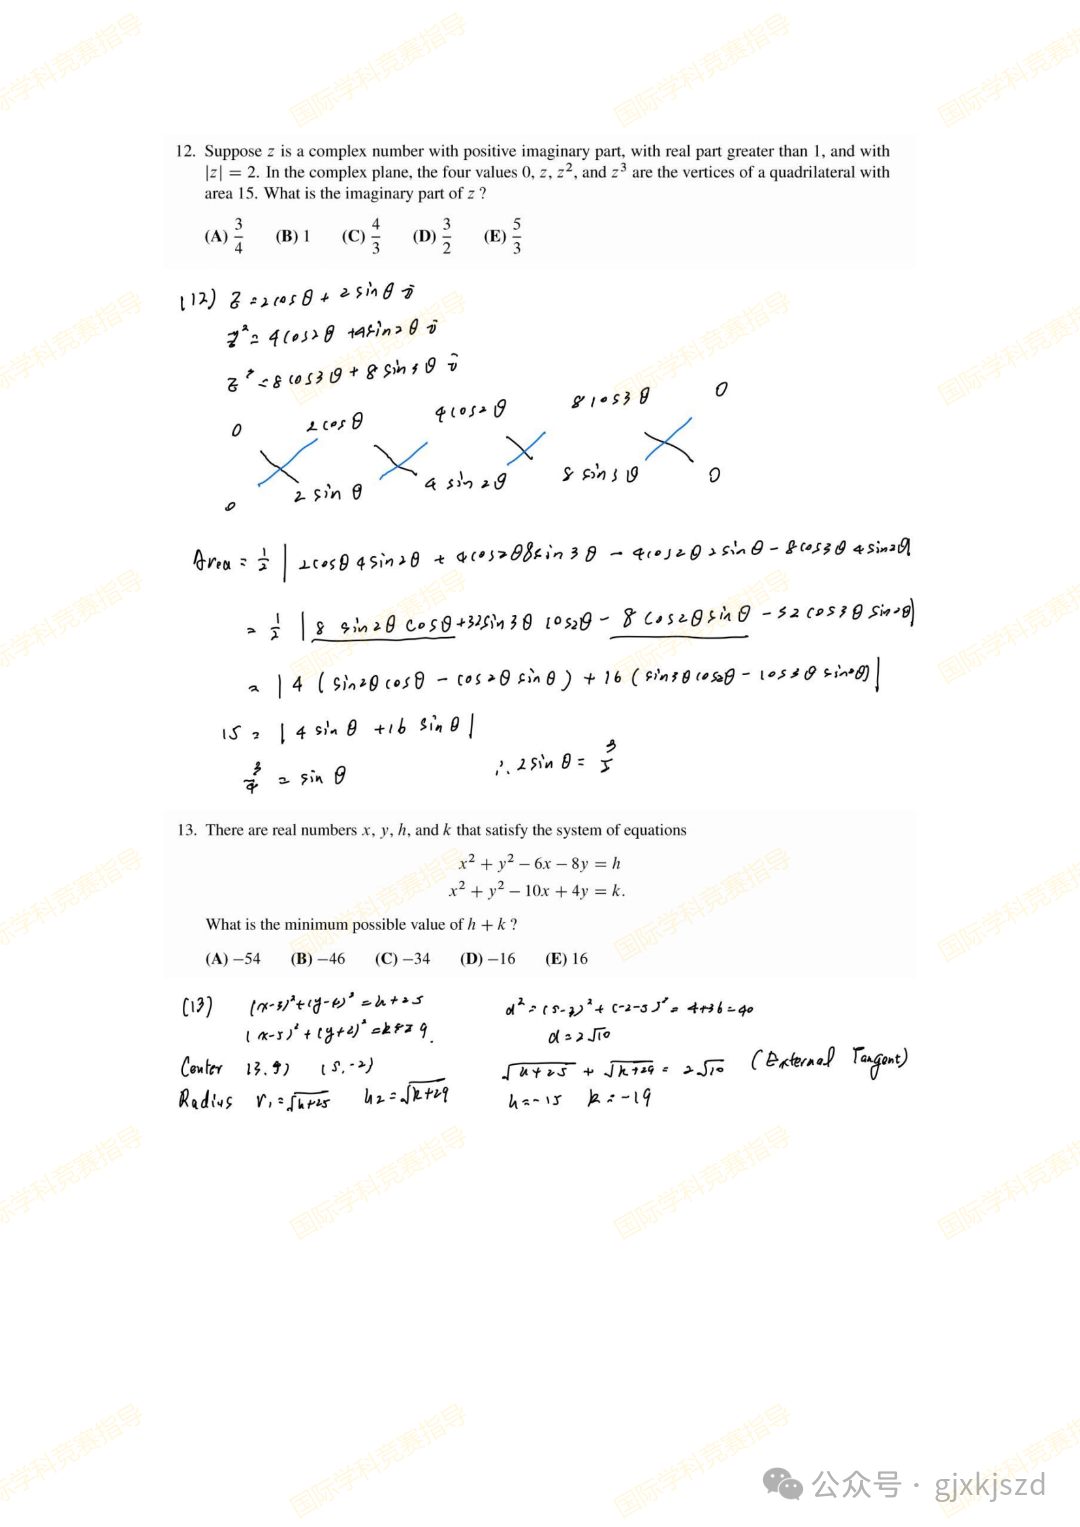 12. Suppose z is a complex number with positive imaginary part, with real part greater than 1, and with
|z| = 2. In the complex plane, the four values 0, z, z², and z³ are the vertices of a quadrilateral with
area 15. What is the imaginary part of z ?
(A) 3/4 (B) 1 (C) 4/3 (D) 3/2 (E) 5/3
(12) z = 2cosθ + 2sinθ i
z² = 4cos2θ + 4sin2θ i
z³ = 8cos3θ + 8sin3θ i
0 2cosθ 4cos2θ 8cos3θ 0
0 2sinθ 4sin2θ 8sin3θ 0
Area = 1/2 | 2cosθ 4sin2θ + 4cos2θ 8sin3θ - 4cos2θ 2sinθ - 8cos3θ 4sin2θ|
= 1/2 | 8 sin2θ cosθ + 32sin3θ cos2θ - 8cos2θ sinθ - 32cos3θ sin2θ|
= | 4 ( sin2θ cosθ - cos2θ sinθ ) + 16 ( sin3θ cos2θ - cos3θ sin2θ) |
15 = | 4 sinθ + 16 sinθ |
3/4 = sinθ ∴ 2sinθ =
13. There are real numbers x, y, h, and k that satisfy the system of equations
x² + y² – 6x – 8y = h
x² + y² – 10x + 4y = k.
What is the minimum possible value of h + k ?
(A) –54 (B) –46 (C) –34 (D) –16 (E) 16
(13) (x-3)²+(y-4)² = h+25 d² = (5-3)² + = 4+36=40
(x-5)²+(y+2)² = k+29. d = 2√10
Center (5,-2) √h+25 + √k+29 = 2√10 (External Tangent)
Radius r₁=√h+25 =√k+29 h=-15 k=-19
国际学科竞赛指导
公众号 · gjxkjszd